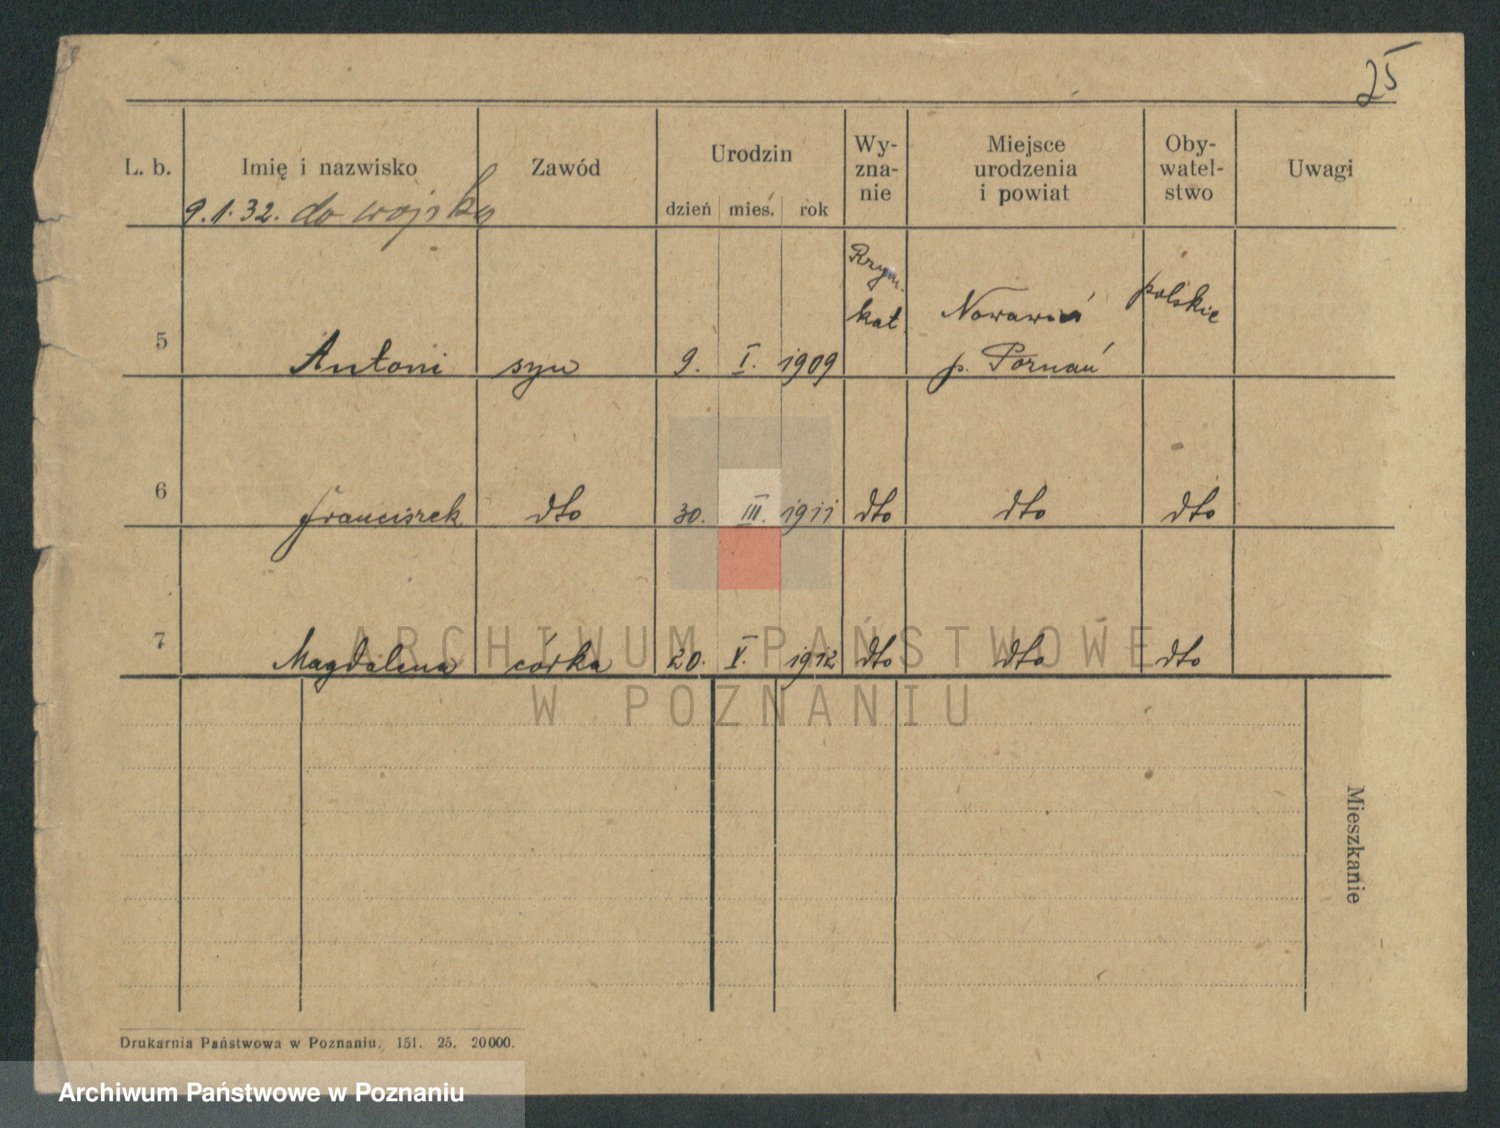 25
L. b. Imię i nazwisko Zawód Urodzin dzień mies. rok Wy-zna-nie Miejsce urodzenia i powiat Oby-watel-stwo Uwagi
9.1.32. do wojska
Rzym.
kat. Nowawieś polskie
5 Antoni syn 9. I. 1909 p. Poznań
6 Franciszek dto 30. III. 1911 dto dto dto
7 Magdalena córka 20. V. 1912 dto dto dto
ARCHIWUM PAŃSTWOWE
W POZNANIU
Mieszkanie
Drukarnia Państwowa w Poznaniu. 151. 25. 20000.
Archiwum Państwowe w Poznaniu